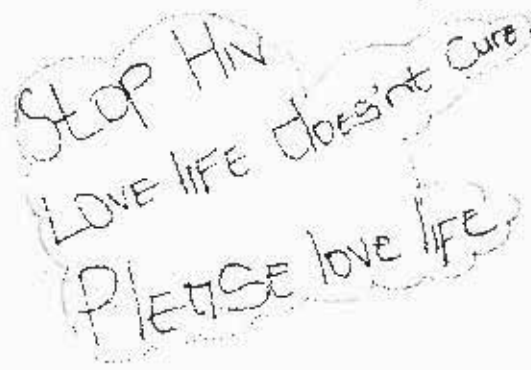 Stop HIV
LOVE lIFE doEs'nt Cure.
PlEASE love lIFE